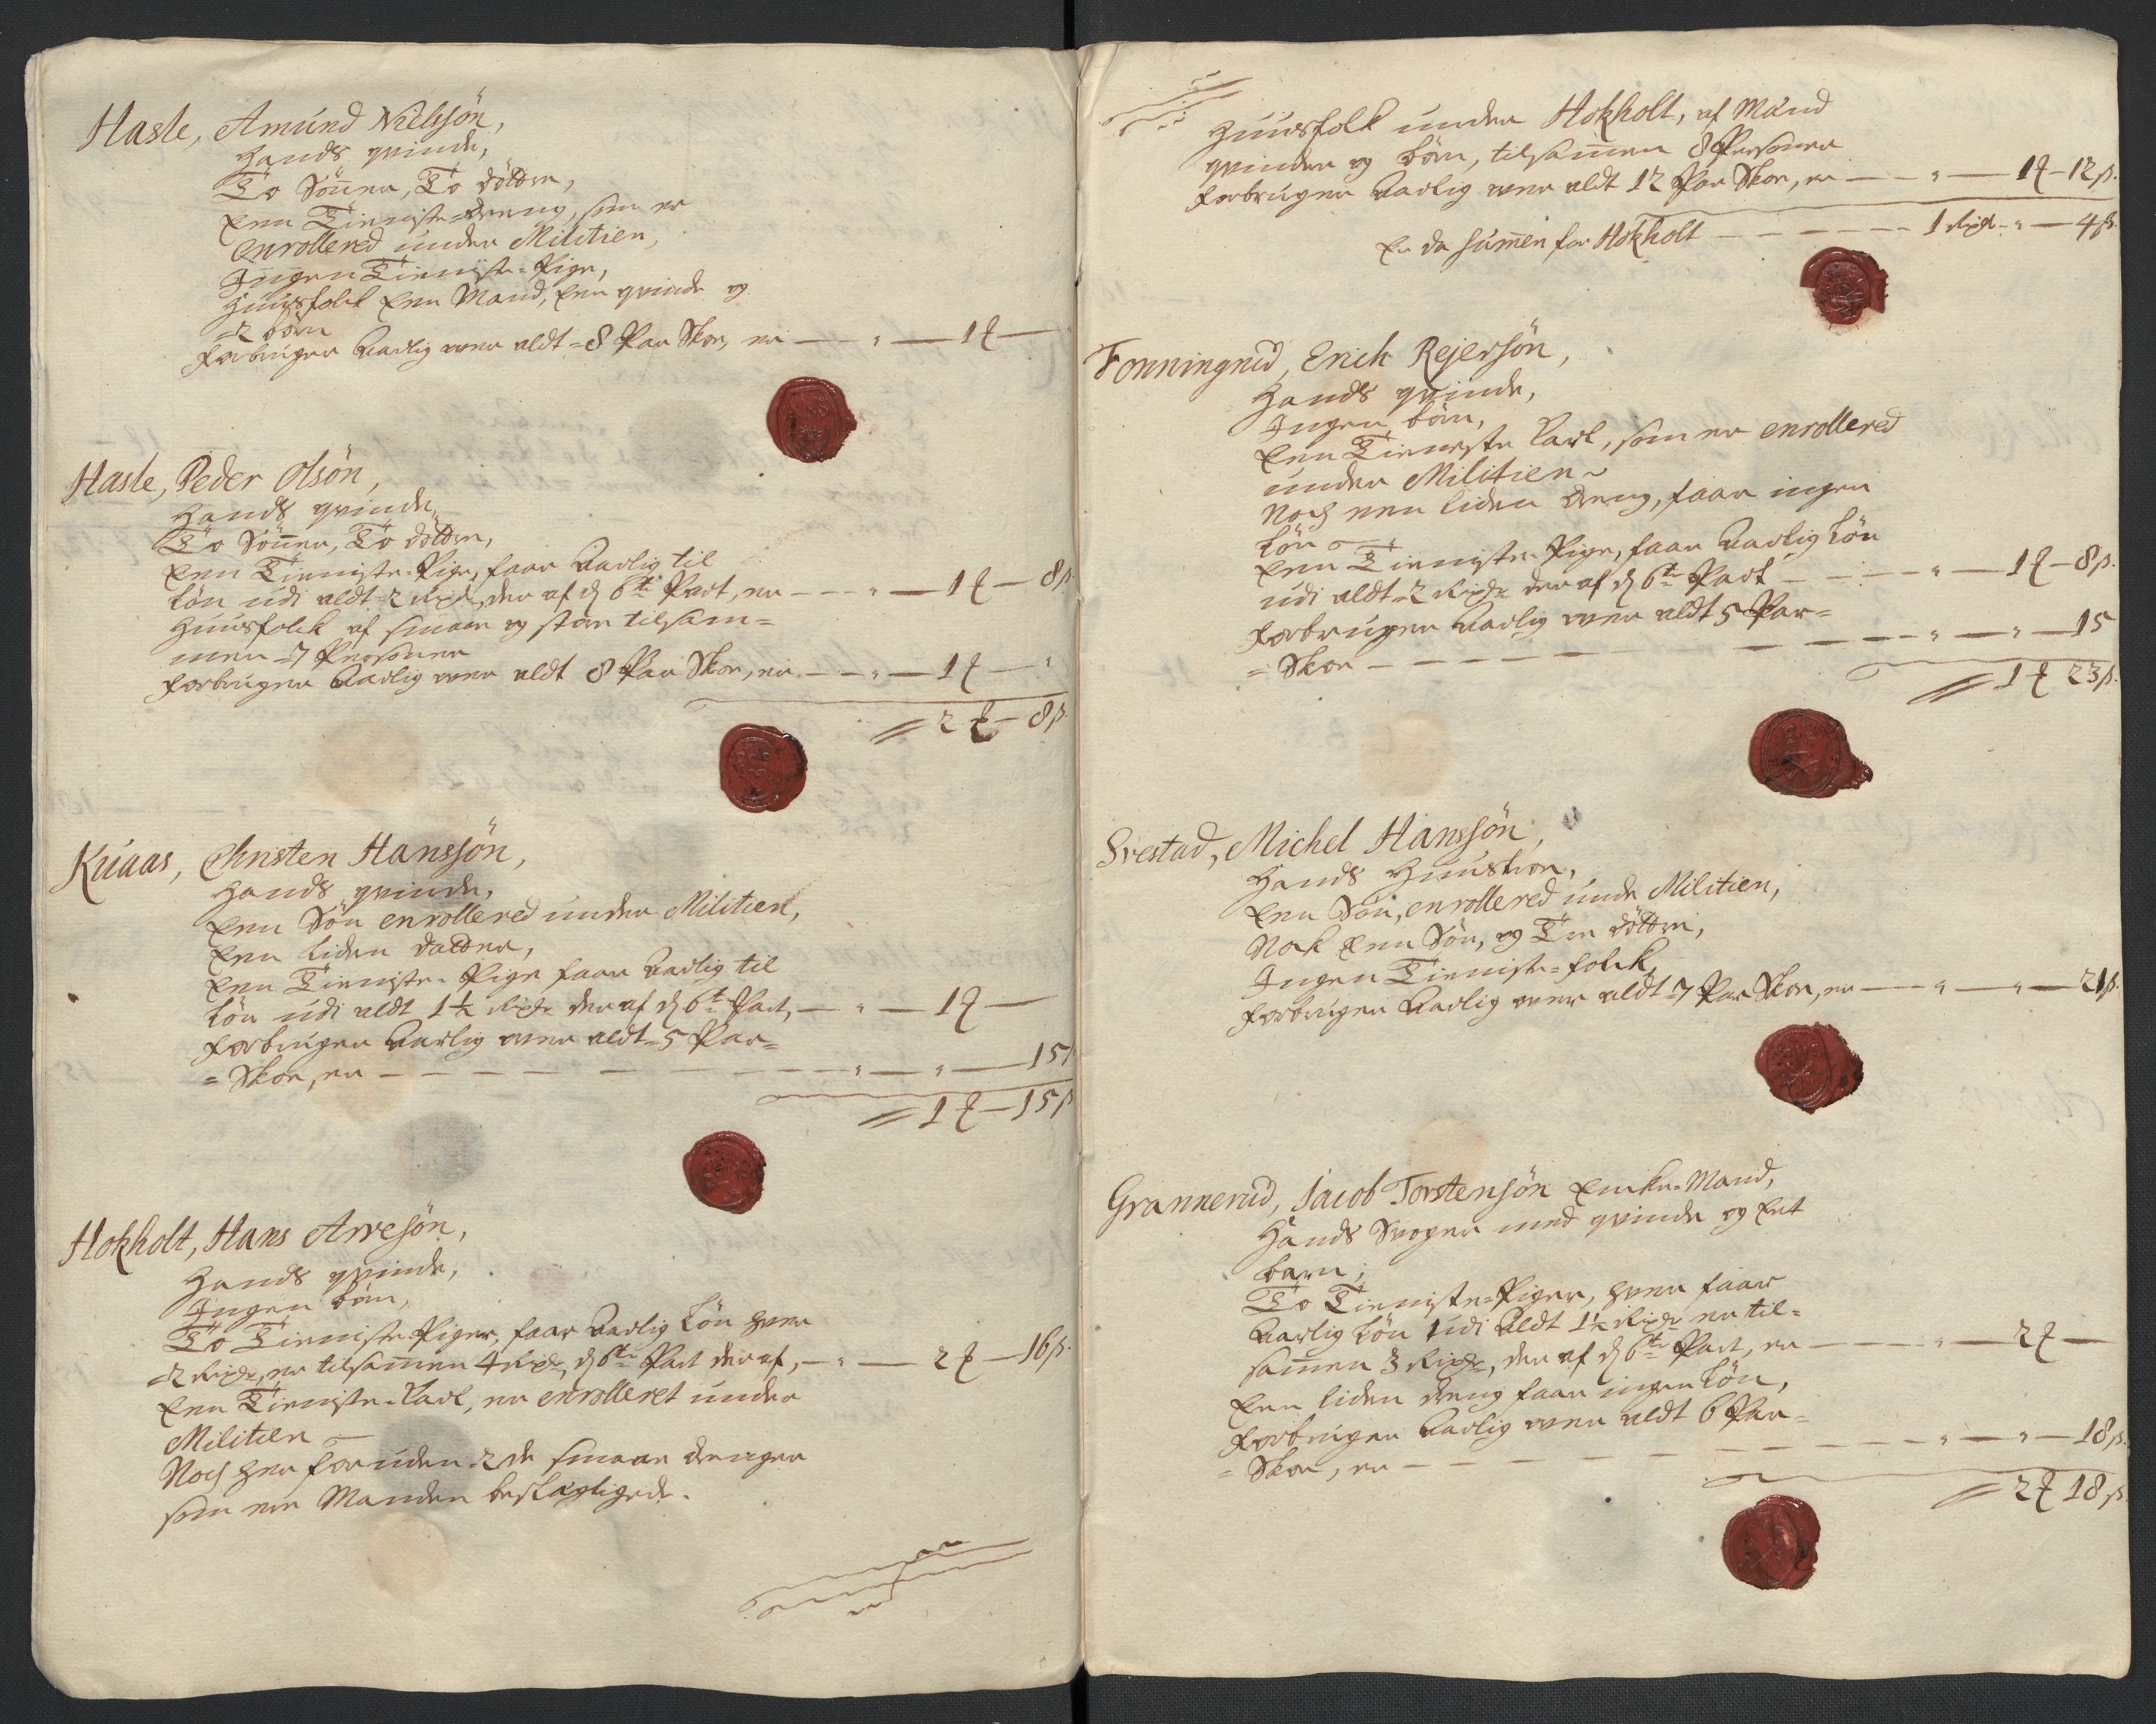 Hasle, Amund Nielssøn,
Hands qvinde,
To Sønner, To døttre,
Een Tieniste-dreng, som er
enrollered under Militien,
Ingen Tieniste-Pige,
Huusfolck Een Mand, Een qvinde og
2 børn
Forbruger Aarlig over aldt 8 Par Skoe, er — " — 1 — "
Hasle, Peder Olsøn,
Hands qvinde,
To Sønner, To døttre,
Een Tieniste-Pige, faar Aarlig til
Løn udi aldt 2 Rixdr der af d 6te Part, er — " — 1 — 8 ß
Huusfolck af smaae og stoere tilsam=
men 7 Personer
Forbruger Aarlig over aldt 8 Par Skoe, er — " — 1 — "
2 — 8 ß
Kuaas, Christen Hanssøn,
Hands qvinde,
Een Søn enrollered under Militien,
Een liden datter,
Een Tieniste-Pige faar Aarlig til
Løn udi aldt 1½ Rixdr der af d 6te Part, — " — 1 —
Forbruger Aarlig over aldt 5 Par=
=Skoe, er — " — " — 15
1 — 15 ß
Hokholt, Hans Arvesøn,
Hands qvinde,
Ingen børn,
To Tieniste-Piger, faar Aarlig Løn hver
2 Rixdr, er tilsammen 4 Rixdr, d 6te Part der af, — " — 2 — 16 ß.
Een Tieniste-Karl, er enrolleret under
Militien
Noch her foruden 2de smaae drenger
som ere Manden beslægtigede.
Huusfolk under Hokholt, af Mand
qvinder og børn, tilsammen 8 Personer
Forbruger Aarlig over aldt 12 Par Skoe, er — " — 1 — 12 ß.
Er da Summen for Hokholt — 1 Rixdr — " — 4 ß.
Fonningrud, Erich Rejersøn,
Hands qvinde,
Ingen børn,
Een Tieneste Karl, som er enrollered
under Militien
Noch een liden dreng, faar ingen
Løn
Een Tieniste-Pige, faar Aarlig Løn
udi aldt 2 Rixdr der af d 6te Part — " — 1 — 8 ß.
Forbruger Aarlig over aldt 5 Par=
=Skoe — " — " — 15
1 23 ß.
Srestad, Michel Hanssøn,
Hands Huustroe,
Een Søn, enrollered under Militien,
Nok Een Søn, og Tre døttre,
Ingen Tieniste-folck
Forbruger Aarlig over aldt 7 Par Skoe, er — " — " — 21 ß.
Grannerud, Jacob Torstensøn Encke-Mand,
Hands Svoger med qvinde og Eet
barn,
To Tieniste-Piger, hver faar
Aarlig Løn udi Aldt 1½ Rixdr er til=
sammen 3 Rixdr, der af d 6te Part, er — " — 2 —
Een liden dreng faar ingen Løn,
Forbruger Aarlig over aldt 6 Par=
=Skoe, er — " — " — 18 ß.
2 18 ß.